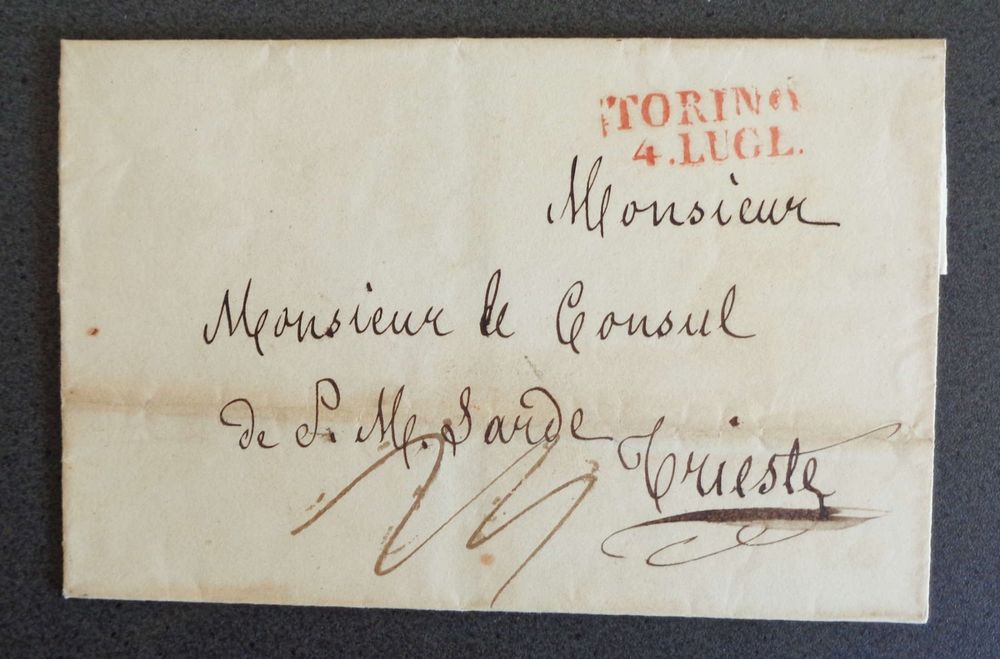 TORINO
4.LUGL.
Monsieur
Monsieur le Consul
de S. M. Sarde
Trieste